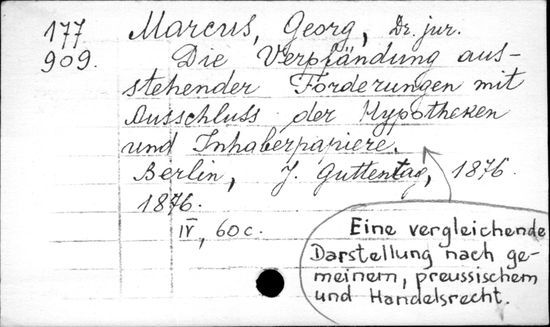 177
909.
Marcus, Georg, Dr. jur.
Die Verpfändung aus-
stehender Forderungen mit
Ausschluss der Hypotheken
und Inhaberpapiere.
Berlin, J. Guttentag, 1876.
1876.
IV, 60 c.
Eine vergleichende
Darstellung nach ge-
meinem, preussischem
und Handelsrecht.